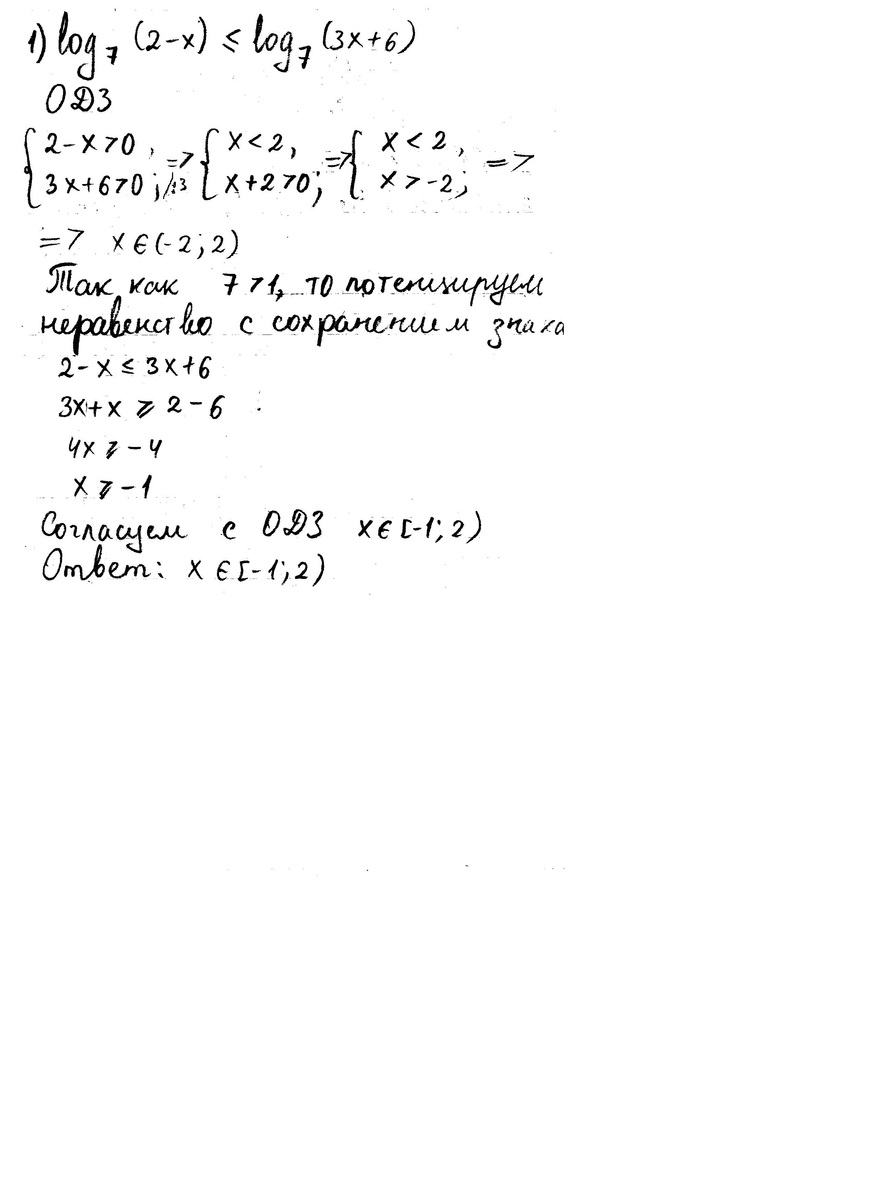 1) log₇ (2-x) ≤ log₇ (3x+6)
ОДЗ
{ 2-x>0, 3x+6>0; /:3 => { x<2, x+2>0; => { x<2, x>-2; =>
=> x ∈ (-2; 2)
Так как 7>1, то потенцируем
неравенство с сохранением знака
2-x ≤ 3x+6
3x+x ⩾ 2-6
4x ⩾ -4
x ⩾ -1
Согласуем с ОДЗ x ∈ [-1; 2)
Ответ: x ∈ [-1; 2)